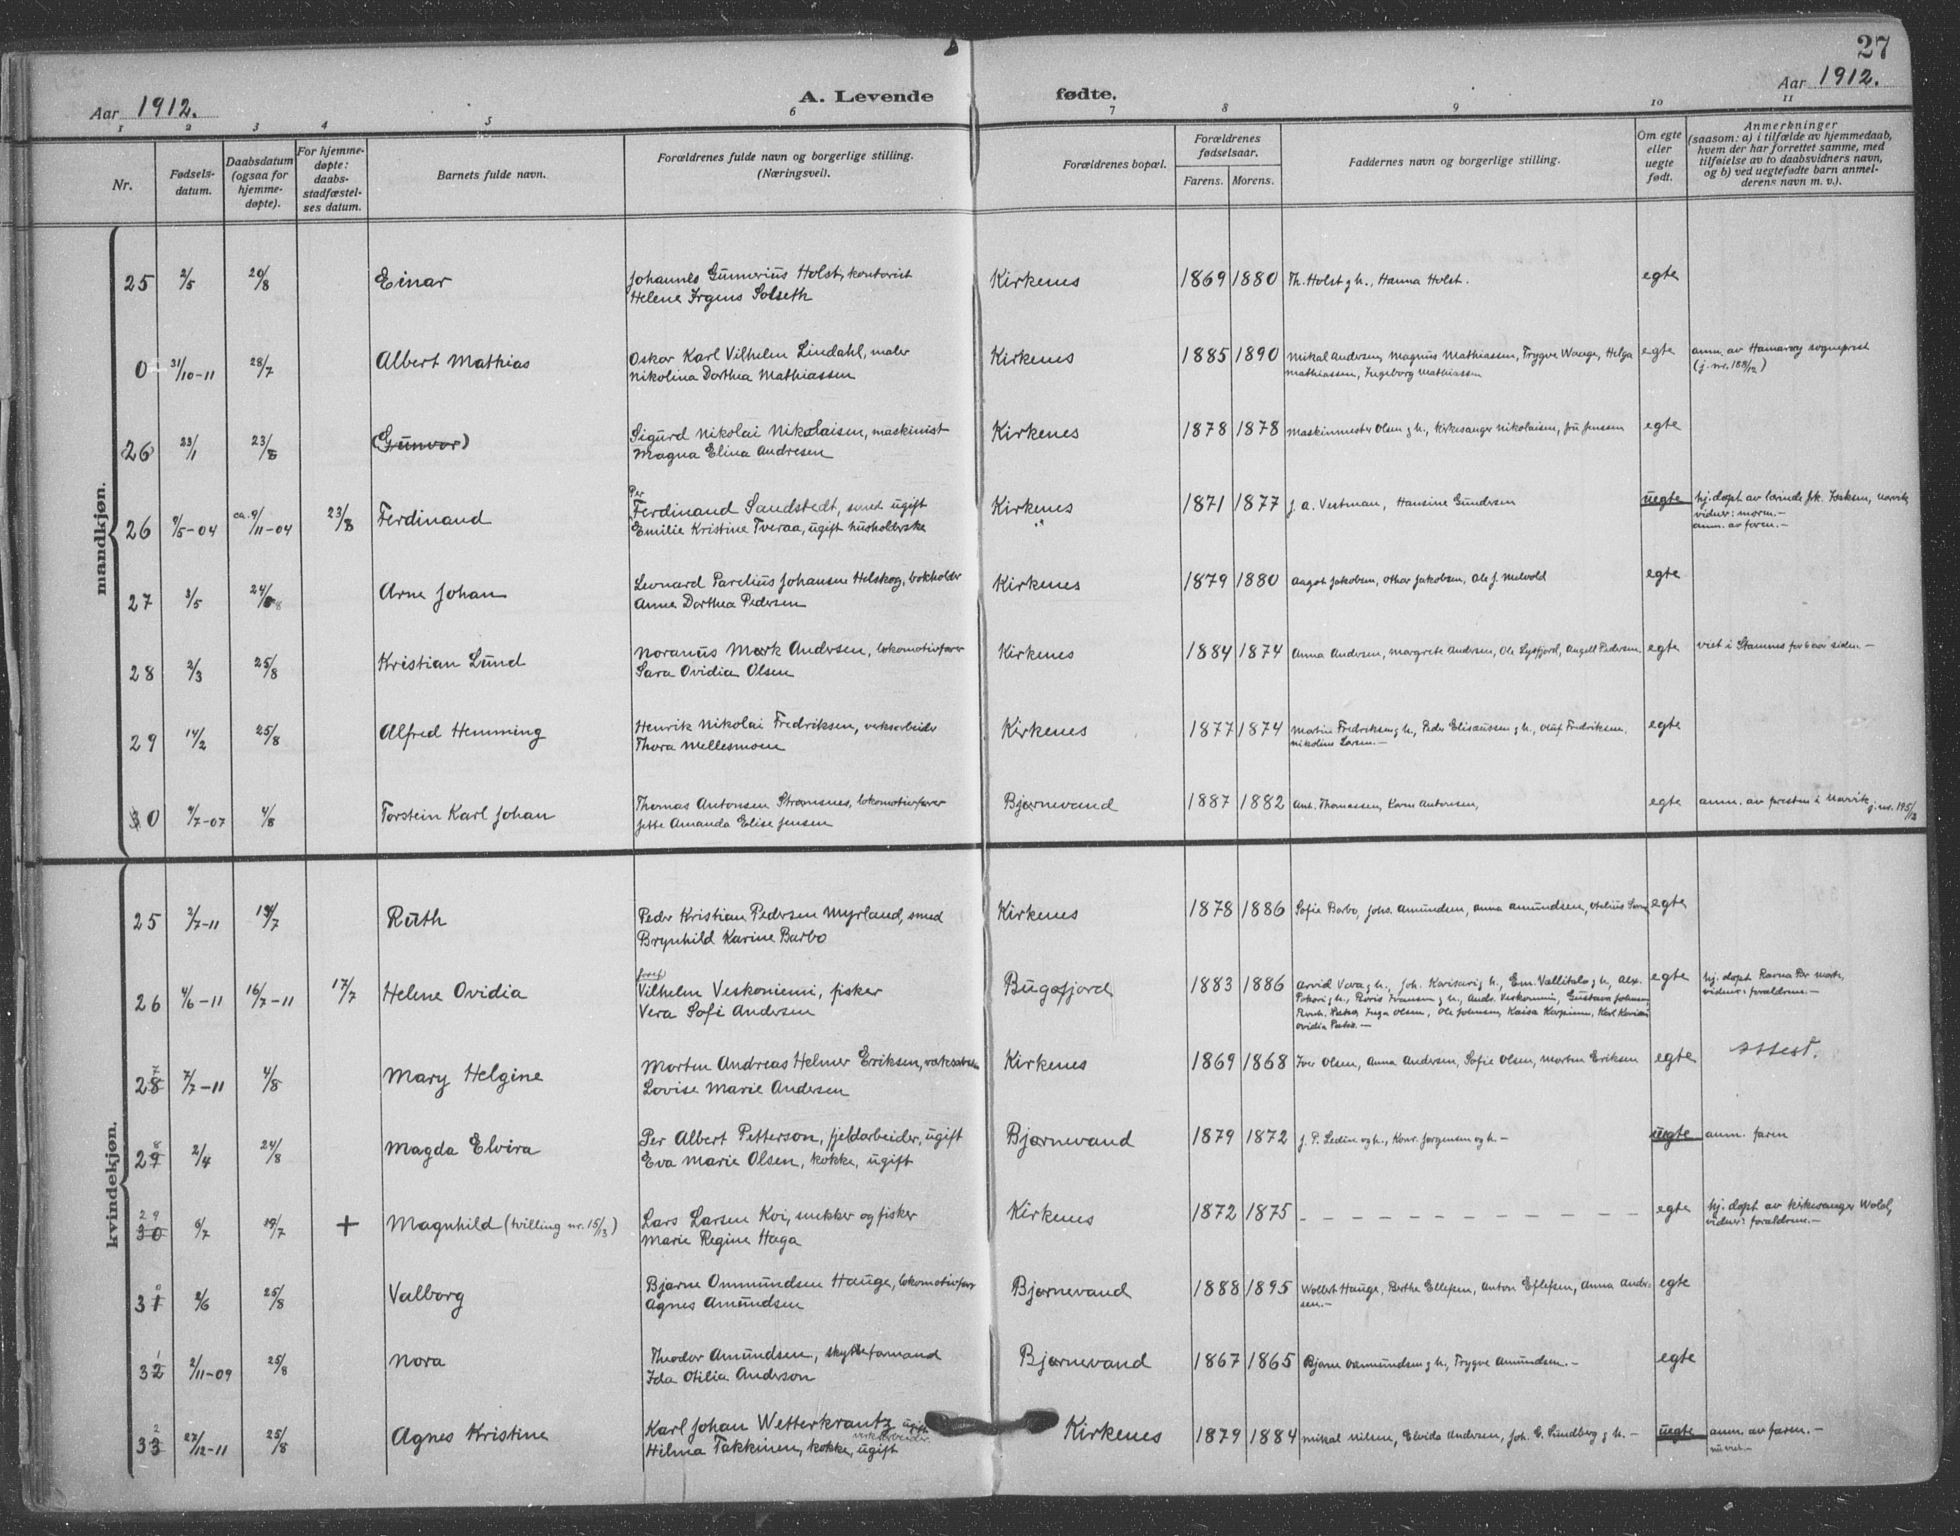 27
Aar 1912.
A. Levende fødte.
Aar 1912.
1 2 3 4 5 6 7 8 9 10 11
Nr.
Fødsels-
datum.
Daabsdatum
(ogsaa for
hjemme-
døpte).
For hjemme-
døpte:
daabs-
stadfæstel-
ses datum.
Barnets fulde navn.
Forældrenes fulde navn og borgerlige stilling.
(Næringsvei).
Forældrenes bopæl.
Forældrenes
fødselsaar.
Farens. Morens.
Faddernes navn og borgerlige stilling.
Om egte
eller
uegte
født.
Anmerkninger
(saasom: a) i tilfælde av hjemmedaab,
hvem der har forrettet samme, med
tilføielse av to daabsvidners navn,
og b) ved uegtefødte barn anmel-
derens navn m. v.).
mandkjøn.
25 2/5 20/8 Einar Johannes Gunnerius Holst, kontorist Kirkenes 1869 1880 Th. Holst g h., Hanna Holst. egte
Helene Irgens Solseth
0 31/10-11 28/7 Albert Mathias Oskar Karl Vilhelm Lindahl, maler Kirkenes 1885 1890 Mikal Andersen, Magnus Mathiassen, Trygve Waage, Helga egte anm. av Hamarøy sogneprest
Nikolina Dorthea Mathiassen Mathiassen, Ingeborg Mathiassen (j. nr. 188/12)
26 23/1 23/8 (Gunvor) Sigurd Nikolai Nikolaisen, maskinist Kirkenes 1878 1878 Maskinmester Olsen g h., Kirkesanger Nikolaisen, fru Jenssen egte
Magna Elina Andresen
26 9/5-04 ca. 9/11-04 23/8 Ferdinand Per Ferdinand Sandstedt, smed ugift Kirkenes 1871 1877 J. A. Vestman, Hansine Gundersen uegte hj. døpt av lærinde frk. Isaksen, Narvik,
Emilie Kristine Tveraa, ugift husholderske " vidner: morm.-
anm. av faren.-
27 3/5 24/8 Arne Johan Leonard Parelius Johansen Helskog, bokholder Kirkenes 1879 1880 August Jakobsen, Othar Jakobsen, Ole J. Melvold egte
Anne Dorthea Pedersen
28 2/3 25/8 Kristian Lund Noranus Mørk Andersen, lokomotivfører Kirkenes 1884 1874 Anna Andersen, Margrete Andersen, Ole Lysfjord, Angell Pedersen egte viet i Stamnes for 6 aar siden.-
Sara Ovidia Olsen
29 14/2 25/8 Alfred Hemming Henrik Nikolai Fredriksen, verksarbeider Kirkenes 1877 1874 Martin Fredriksen g h., Peder Elisaussen g h., Oluf Fredriksen, egte
Thora Mellesmoen Nikoline Larsen.-
30 9/7-07 4/8 Torstein Karl Johan Thomas Antonsen Strømsnes, lokomotivfører Bjørnevand 1887 1882 Ant. Thomassen, Karn Antonsen, egte anm. av presten i Narvik j. nr. 195/12
Jette Amanda Elise Jensen
kvindekjøn.
25 2/7-11 14/7 Ruth Peder Kristian Pedersen Myrland, smed Kirkenes 1878 1886 Sofie Barbo, Johs. Amundsen, Anna Amundsen, Otelius egte
Brynhild Karine Barbo
26 4/6-11 16/7-11 17/7 Helene Ovidia Josef Vilhelm Veskoniemi, fisker Bugøfjord 1883 1886 Arvid Vara g h., Joh. Karisari g h., Em. Vallitalo g h., Alx. egte hj. døpt
Vera Sofi Andersen Inga Olsen, Ole Johnsen, Kaisa Karpinen, Karl vidner: forældrene.-
Ovidia
28 7 7/7-11 4/8 Mary Helgine Morten Andreas Helmer Eriksen, verksarb. Kirkenes 1869 1868 Iver Olsen, Anna Andersen, Sofie Olsen, Morten Eriksen egte Attest.
Lovise Marie Andersen
29 8 2/4 24/8 Magda Elvira Per Albert Petterson, fjeldarbeider, ugift Bjørnevand 1879 1872 J. P. Ledin og h., Konr. Jørgensen og h.- uegte anm. faren
Eva Marie Olsen, kokke, ugift
30 29 6/7 19/7 + Magnhild (tvilling nr. 15/13) Lars Larsen Kvi, snekker og fisker Kirkenes 1872 1875 - - - - - - - - - egte hj. døpt av kirkesanger Wold,
Marie Regine Haga vidner: forældrene.-
31 0 2/6 25/8 Valborg Bjarne Ommundsen Hauge, lokomotivfører Bjørnevand 1888 1895 Wollert Hauge, Berthe Ellefsen, Anton Ellefsen, Anna Ander- egte
Agnes Amundsen sen.-
32 1 2/11-09 25/8 Nora Theodor Amundsen, skytterformand Bjørnevand 1867 1865 Bjarne Ommundsen g h., Trygve Amundsen.- egte
Ida Otilia Anderson
33 2 27/12-11 25/8 Agnes Kristine Karl Johan Wetterkrantz, ugift Kirkenes 1879 1884 Mikal Nilsen, Elvida Andersen, Joh. G. Lundberg g h.- uegte anm. av faren.-
verksarbeider
Hilma Takkinen, kokke, ugift nu viet.-